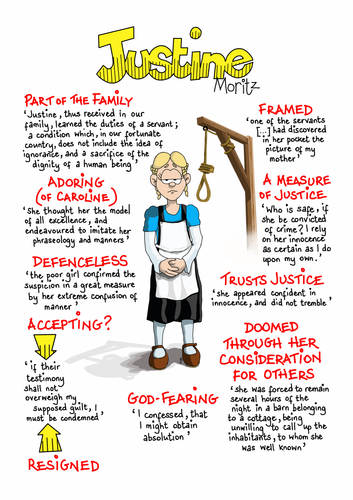 Justine
Moritz
PART OF THE FAMILY
'Justine, thus received in our
family, learned the duties of a servant;
a condition which, in our fortunate
country, does not include the idea of
ignorance, and a sacrifice of the
dignity of a human being'
ADORING
(OF CAROLINE)
'She thought her the model
of all excellence, and
endeavoured to imitate her
phraseology and manners'
DEFENCELESS
'the poor girl confirmed the
suspicion in a great measure
by her extreme confusion of
manner'
ACCEPTING?
'if their
testimony
shall not
overweigh my
supposed guilt, I
must be condemned'
RESIGNED
GOD-FEARING
'I confessed, that
I might obtain
absolution'
FRAMED
'one of the servants
[...] had discovered
in her pocket the
picture of my
mother'
A MEASURE
OF JUSTICE
'Who is safe, if
she be convicted
of crime? I rely
on her innocence
as certain as I do
upon my own.'
TRUSTS JUSTICE
'she appeared confident in
innocence, and did not tremble'
DOOMED
THROUGH HER
CONSIDERATION
FOR OTHERS
'she was forced to remain
several hours of the
night in a barn belonging
to a cottage, being
unwilling to call up the
inhabitants, to whom she
was well known'